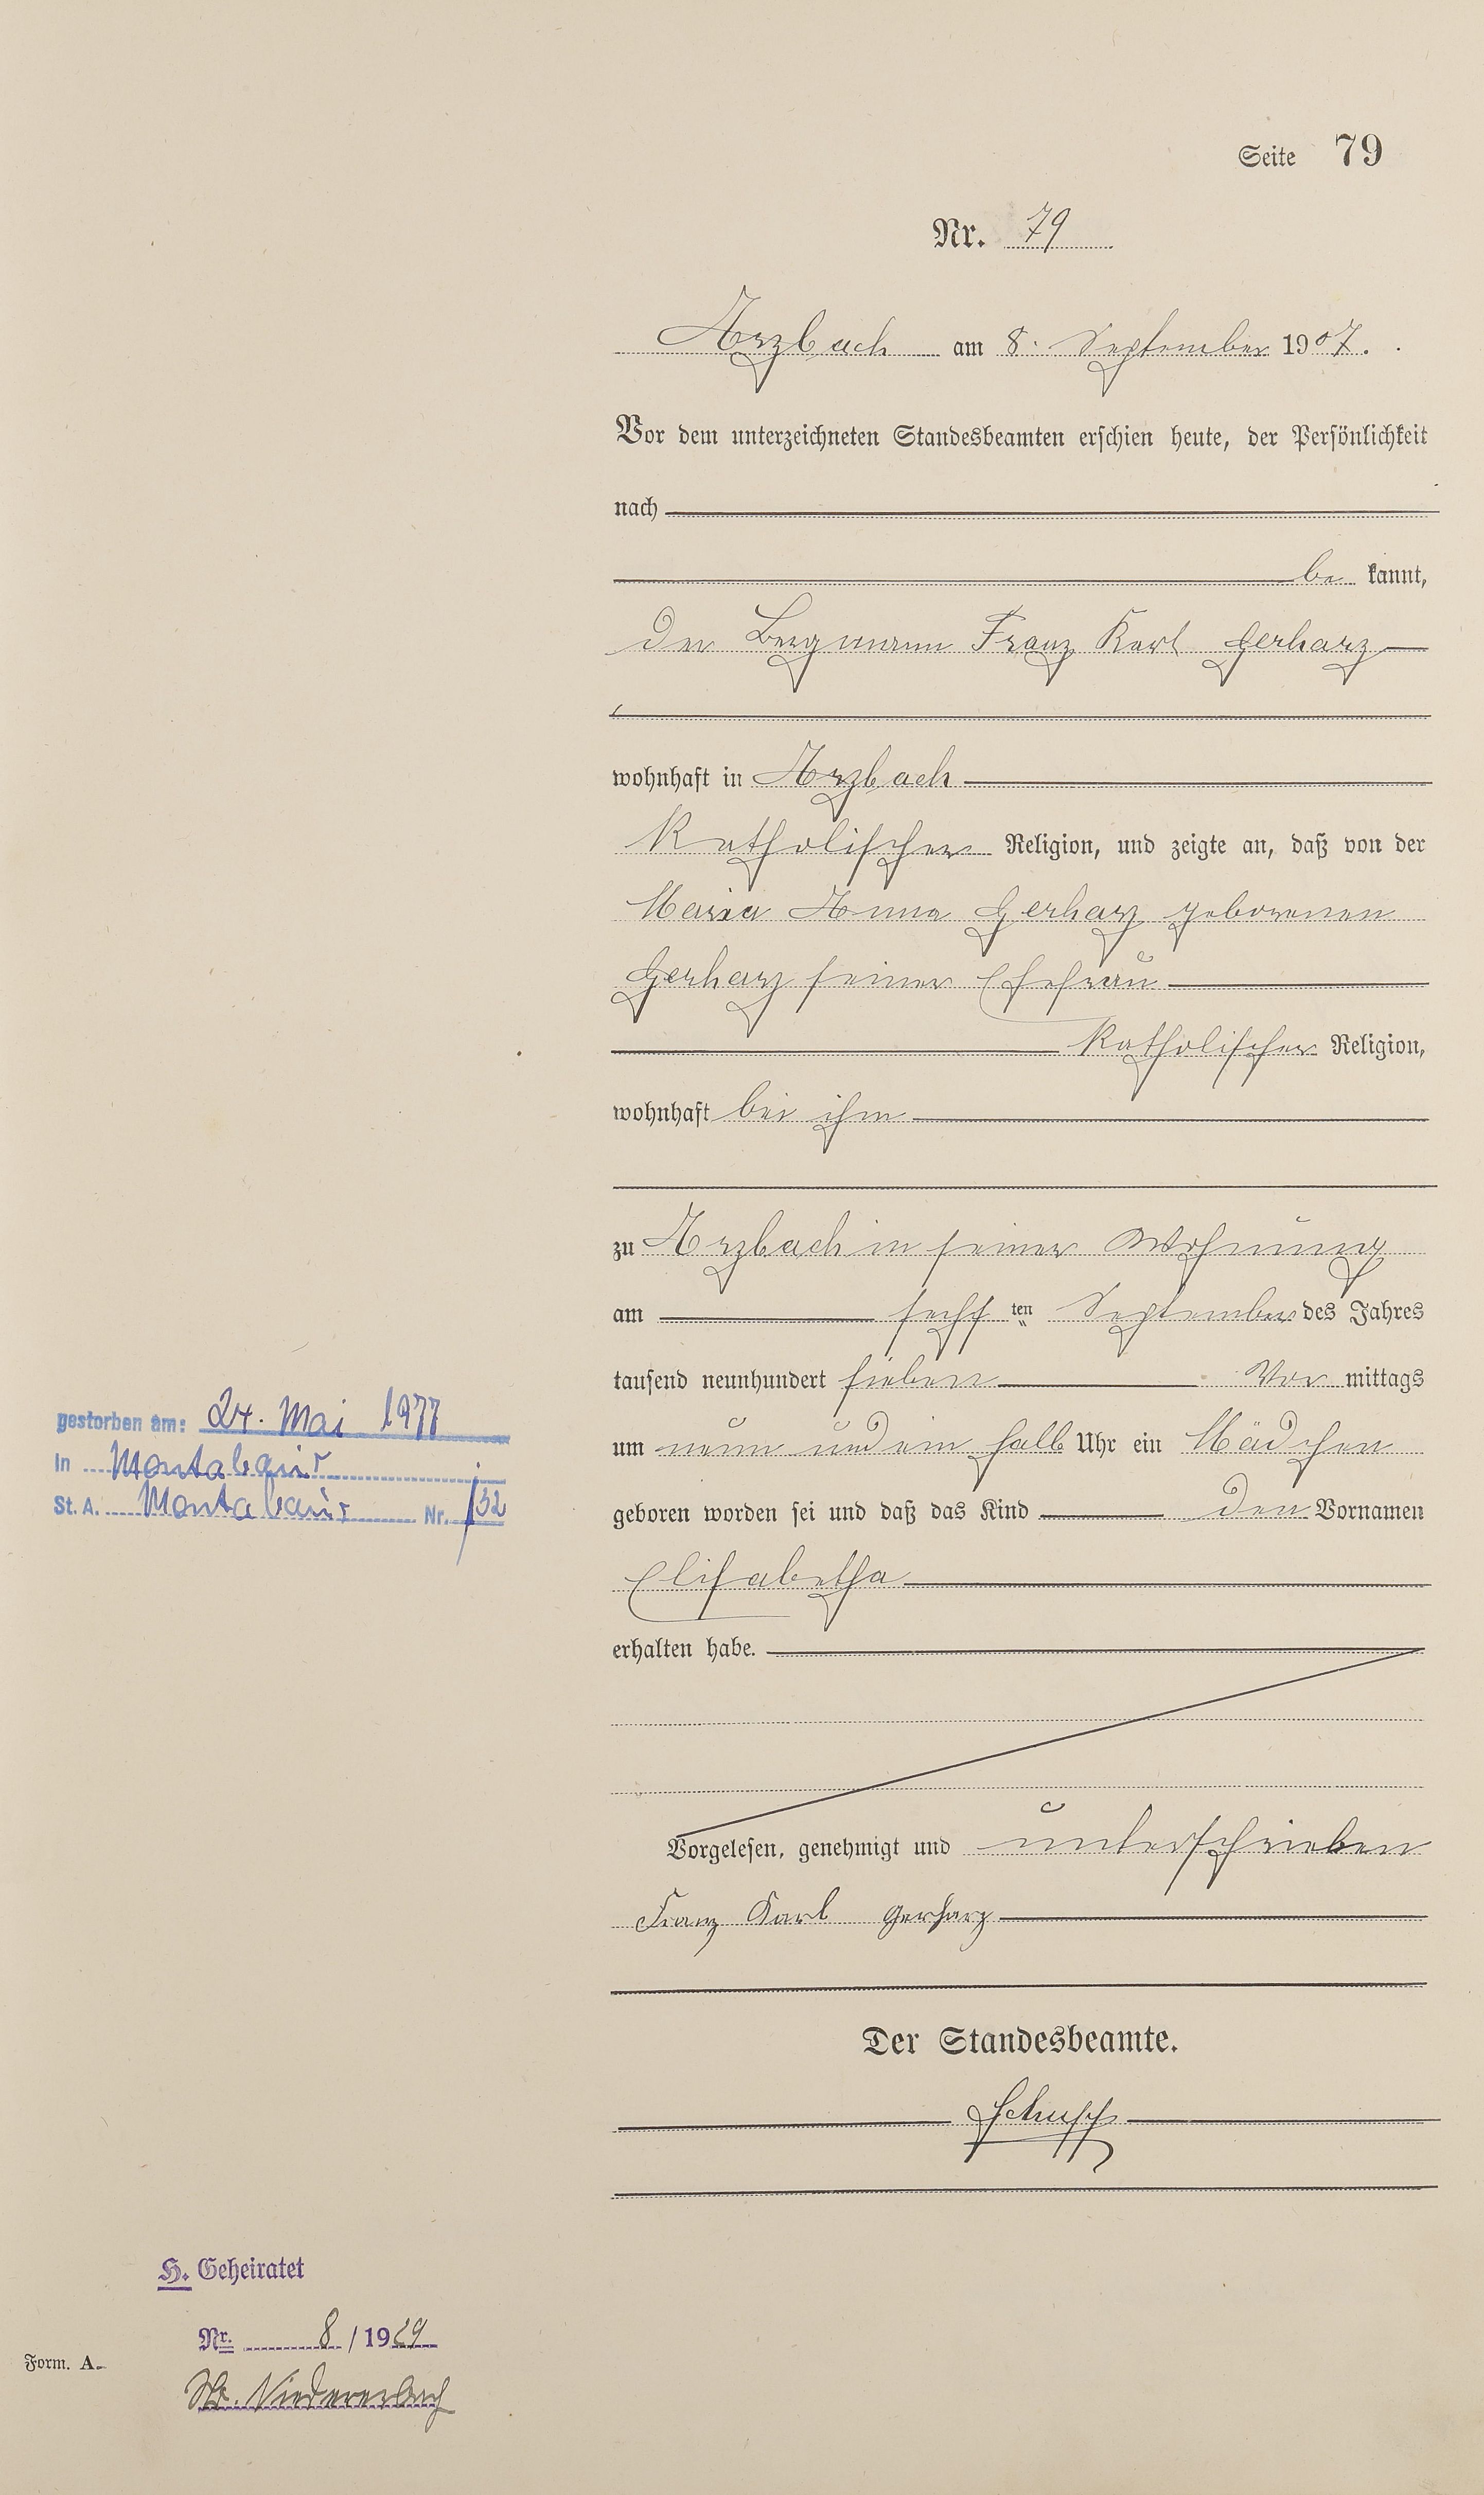 Seite 79
Nr. 79
Arzbach am 8. September 1907.
Vor dem unterzeichneten Standesbeamten erschien heute, der Persönlichkeit
nach
be kannt,
der Bergmann Franz Karl Gerharz
wohnhaft in Arzbach
Katholischer Religion, und zeigte an, daß von der
Maria Anna Gerharz geborenen
Gerharz seiner Ehefrau
Katholischer Religion,
wohnhaft bei ihm
zu Arzbach in seiner Wohnung
am sechs ten September des Jahres
tausend neunhundert sieben Vor mittags
um neun und ein halb Uhr ein Mädchen
geboren worden sei und daß das Kind den Vornamen
Elisabetha
erhalten habe.
Vorgelesen, genehmigt und unterschrieben
Franz Karl Gerharz
Der Standesbeamte.
Schupp
gestorben am: 24. Mai 1977
In Montabaur
St. A. Montabaur Nr. 132
H. Geheiratet
Nr. 8 / 1929
Form. A.
Niedererbach